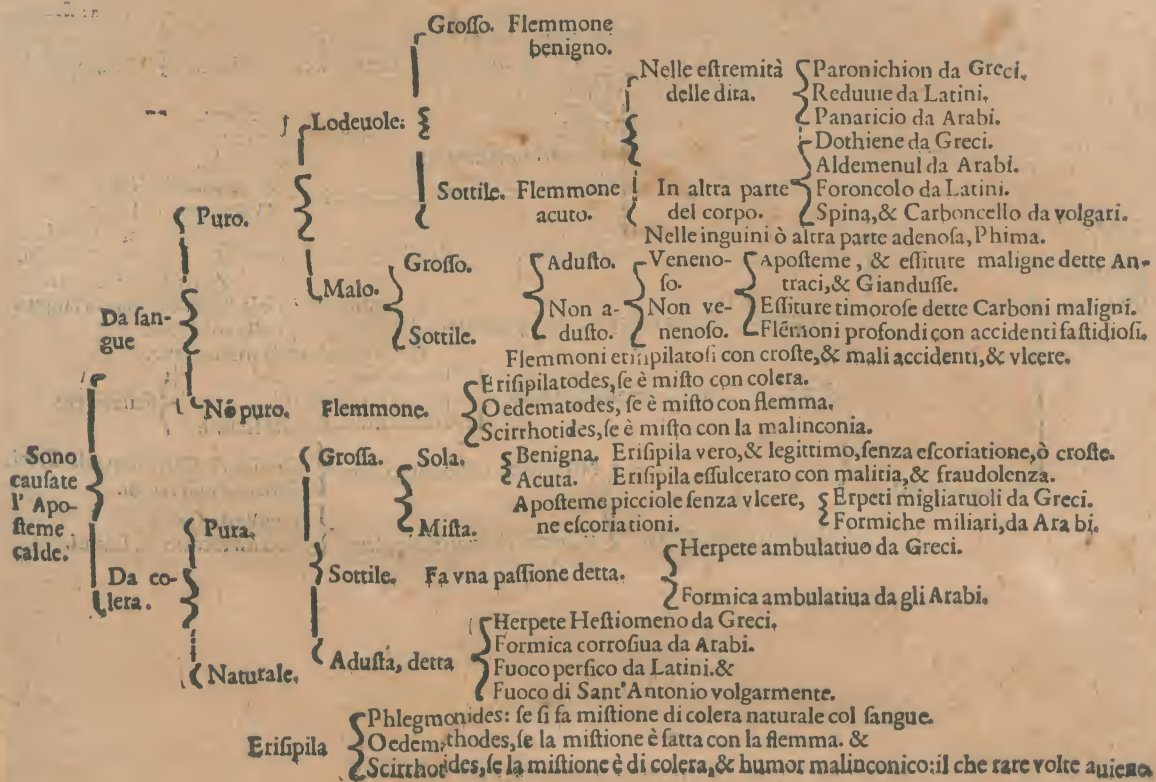 Grosso. Flemmone
benigno.
Nelle estremità
delle dita.
Paronichion da Greci.
Reduuie da Latini.
Panaricio da Arabi.
Lodeuole:
Dothiene da Greci.
Aldemenul da Arabi.
Sottile. Flemmone
acuto.
In altra parte
del corpo.
Foroncolo da Latini.
Spina, & Carboncello da volgari.
Puro.
Nelle inguini ò altra parte adenosa, Phima.
Malo.
Grosso.
Sottile.
Adusto.
Non a-
dusto.
Veneno-
so.
Non ve-
nenoso.
Aposteme, & essiture maligne dette An-
traci, & Giandusse.
Essiture timorose dette Carboni maligni.
Flémoni profondi con accidenti fastidiosi.
Da san-
gue
Flemmoni erisipilatosi con croste, & mali accidenti, & vlcere.
Nó puro. Flemmone.
Erisipilatodes, se è misto con colera.
Oedematodes, se è misto con flemma.
Scirrhotides, se è misto con la malinconia.
Sono
causate
l' Apo-
steme
calde.
Grossa.
Sola.
Benigna. Erisipila vero, & legittimo, senza escoriatione, ò croste.
Acuta. Erisipila essulcerato con malitia, & fraudolenza.
Mista.
Aposteme picciole senza vlcere,
ne escoriationi.
Erpeti migliaruoli da Greci.
Formiche miliari, da Arabi.
Pura.
Da co-
lera.
Sottile. Fa vna passione detta.
Herpete ambulatiuo da Greci.
Formica ambulatiua da gli Arabi.
Adusta, detta
Herpete Hestiomeno da Greci.
Formica corrosiua da Arabi.
Fuoco persico da Latini. &
Fuoco di Sant'Antonio volgarmente.
Naturale.
Erisipila
Phlegmonides: se si fa mistione di colera naturale col sangue.
Oedemathodes, se la mistione è fatta con la flemma. &
Scirrhotides, se la mistione è di colera, & humor malinconico: il che rare volte auiene.